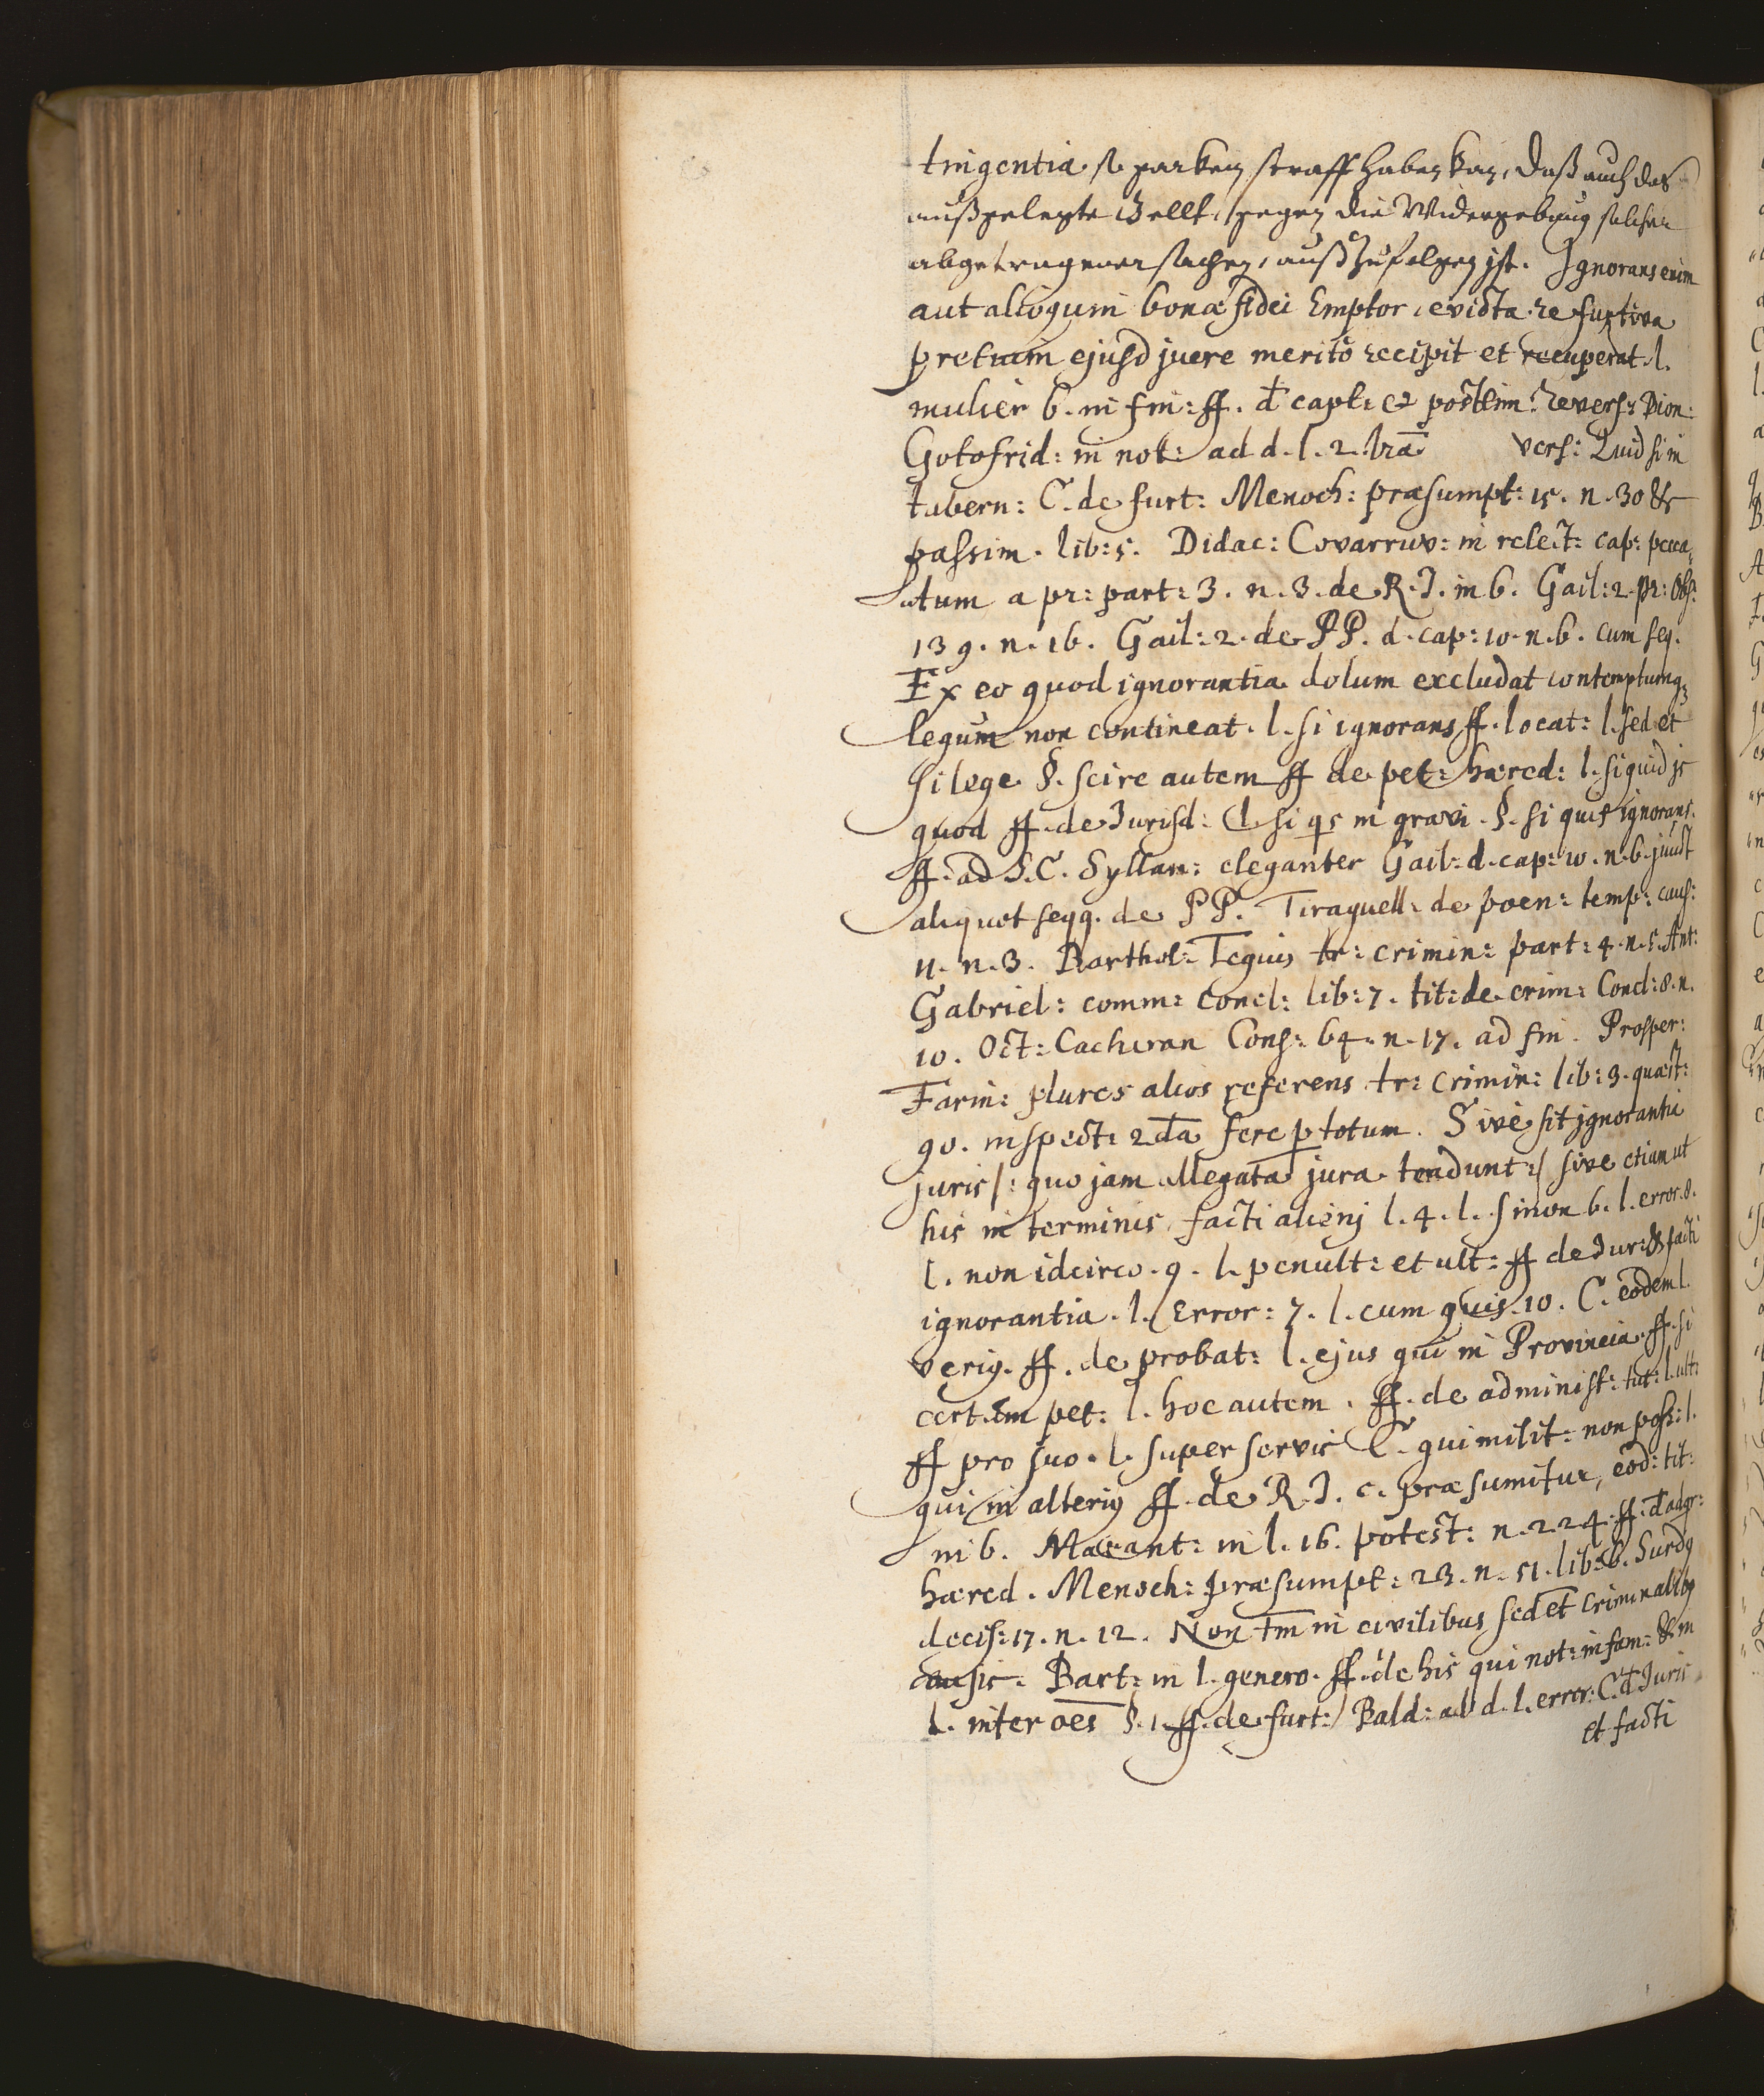 tringentia so starken straff haben kan, daß auch das
außgelegte Gellt, gegen die Widergebung solcher
abgetragener sachen, auß Zufolgen ist. Ignorans enim
aut alioquin bonæ fidei Emptor, evicta re furtiva
pretium ejusd jure meritò recipit et recuperat. l.
mulier 6. in fin: ff. d capt: et postlim: revers: Dion:
Gotofrid: in not: ad d. l. 2. vers: Quid si in
tabern: C. de furt: Menoch: præsumpt: 15. n. 30 &
passim. lib: 5. Didac: Covarruv: in relect: cap: pecca,
atum a pr: part: 3. n. 3. de R. J. in 6. Gail: 2. pr: Obs:
139. n. 16. Gail: 2. de PP. d. cap: 10. n. 6. cum seq.
Ex eo quod ignorantia dolum excludat contemptumq;
legum non contineat. l. si ignorans ff. locat: l. sed et
si lege §. scire autem ff de pet: hæred: l. siquid is
quod ff. de Jurisd: l. si qs in gravi. §. si quis ignorans.
ff. ad S. C. Syllan: eleganter Gail: d. cap: 10. n. 6. junct
aliquot seqq. de PP. Tiraquell: de poen: temp: caus:
11. n. 3. Barthol: tr: crimin: part: 4. n. 5. Ant:
Gabriel: comm: Concl: lib: 7. tit: de crim: Concl: 8. n.
10. Oct: Cacheran Cons: 64. n. 17. ad fin. Prosper:
Farin: plures alios referens tr: crimin: lib: 3. quæst:
90. inspect: 2da fere p totum. Sive sit ignorantia
juris /: quo jam allegata jura tendunt :/ sive etiam ut
his in terminis facti alienj l. 4. l. si non 6. l. error. 8.
l. non idcirco. 9. l. penult: et ult: ff de Jur: & facti
ignorantia. l. Error: 7. l. cum quis. 10. C. eodem l.
veriq. ff. de probat: l. ejus qui in Provincia. ff. si
certum pet: l. hoc autem. ff. de administ: tut: l. ult:
ff pro suo. l. super servis C. qui milit: non poss: l.
qui in alteriq ff. de R. J. c. præsumitur, eod: tit:
in 6. Marant: in l. 16. potest: n. 224. ff. d adqr:
hæred. Menoch: præsumpt: 23. n. 51. lib: 6. Surdq
decis: 17. n. 12. Non tm in civilibus sed et criminalibq
ausis. Bart: in l. genero. ff. de his qui not: infam: & in
l. inter oes §. 1. ff. de furt: Bald: ad d. l. error: C. d Juris
et facti